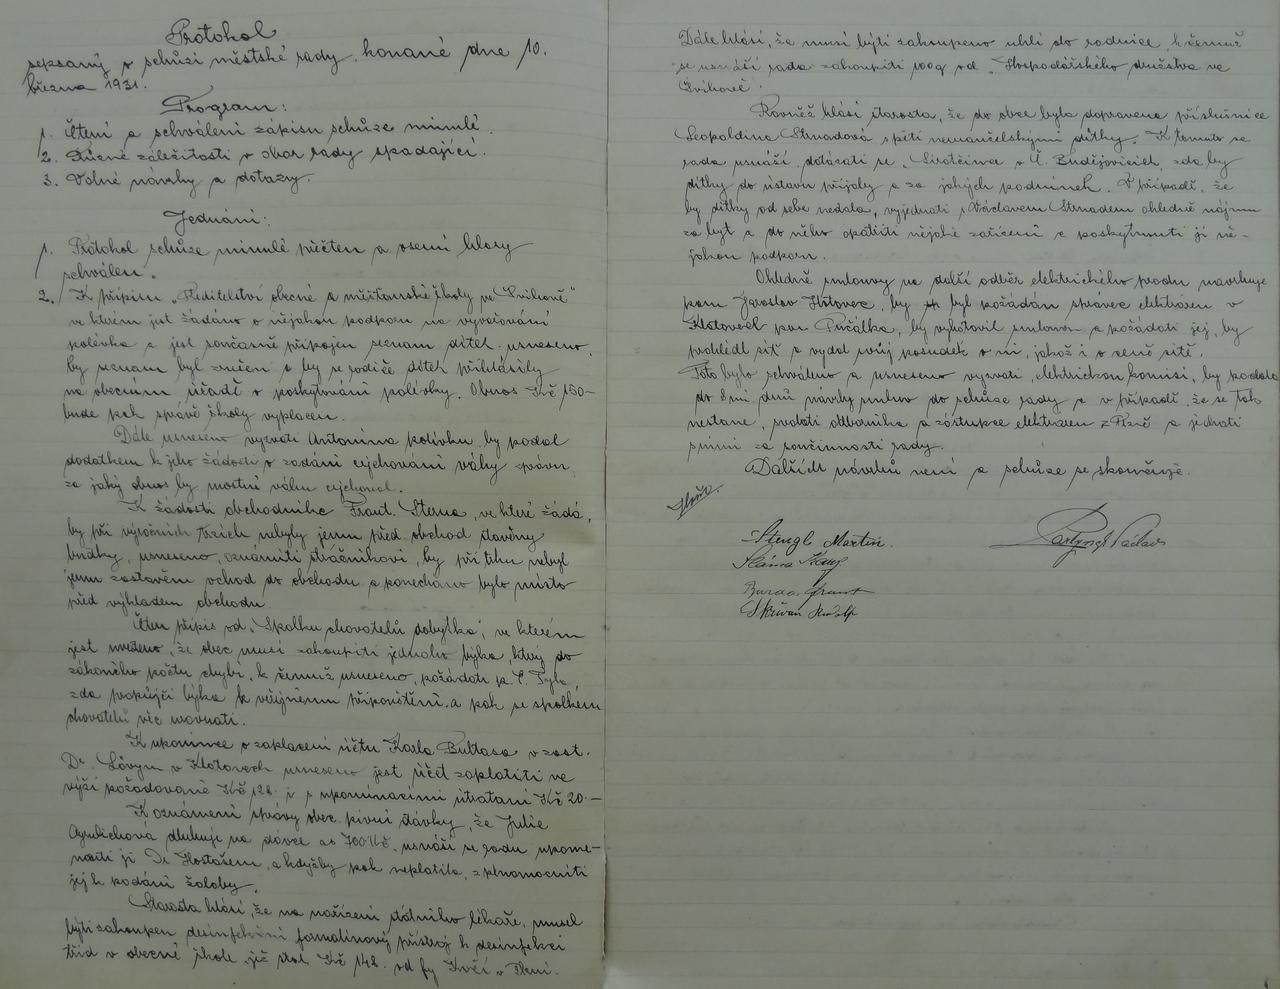 Protokol
sepsaný o schůzi městské rady, konané dne 10.
března 1931.
Program:
1. Čtení a schválení zápisu schůze minulé.
2. Různé záležitosti v obor rady spadající.
3. Volné návrhy a dotazy.
Jednání:
1. Protokol schůze minulé přečten a osmi hlasy
schválen.
2. K přípisu „Ředitelství obecné a měšťanské školy ve Švihově"
ve kterém jest žádáno o nějakou podporu na vyvařování
polévka a jest současně připojen seznam dítek, usneseno,
by seznam byl zrušen a by se rodiče dítek přihlásily
na obecním úřadě o poskytování polévky. Obnos Kč 150-
bude pak správě školy vyplacen.
Dále usneseno vyzvati Antonína Polívku, by podal
dodatkem k jeho žádosti o zadání cejchování váhy zprávu,
za jaký obnos by mostní váhu cejchoval.
K žádosti obchodníka Frant. Sterna, ve které žádá,
by při výročních trzích nebyly jemu před obchod stavěny
boudky, usneseno, oznámiti strážníkovi, by při trhu nebyl
jemu zastavěn vchod do obchodu a ponecháno bylo místo
před výkladem obchodu.
Čten přípis od „Spolku chovatelů dobytka", ve kterém
jest uvedeno, že obec musí zakoupiti jednoho býka, který do
zákonného počtu chybí, k čemuž usneseno, požádati p. Tyla,
zda propůjčí býka k veřejnému připouštění, a pak se spolkem
chovatelů věc urovnati.
K upomínce o zaplacení účtu Karla Bultasa v zast.
Dr. Lövym v Klatovech usneseno jest účet zaplatiti ve
výši požadované Kč 128 i s upomínacími útratami Kč 20.-
K oznámení správy obec. pivní dávky, že Julie
dluhuje na dávce as 700 Kč, usnáší se rada upome-
nouti ji Dr Hostašem, a kdyžby pak neplatila, zplnomocniti
jej k podání žaloby.
Starosta hlásí, že na nařízení státního lékaře, musel
býti zakoupen desinfekční formalinový přístroj k desinfekci
tříd v obecné škole, jež stál Kč 148 od fy Křečí v Plzni.
Dále hlásí, že musí býti zakoupeno uhlí do radnice, k čemuž
se usnáší rada zakoupiti 100q od „Hospodářského družstva ve
Švihově".
Rovněž hlásí starosta, že do obce byla dopravena příslušnice
Leopoldina Strnadová s pěti nemanželskými dítky. K tomuto se
rada usnáší, dotázati se „Sirotčince v Č. Budějovicích, zda by
dítky do ústavu přijaly a za jakých podmínek. V případě, že
by dítky od sebe nedala, vyjednati s Václavem Strnadem ohledně nájmu
za byt a do něho opatřiti nějaké zařízení a poskytnouti jí ně-
jakou podporu.
Ohledně smlouvy na další odběr elektrického proudu navrhuje
pan Jaroslav Hátovec, by byl požádán správce elektráren v
Klatovech pan Purčálka, by vyhotovil smlouvu a požádati jej, by
prohlédl síť a vydal svůj posudek o ní, jakož i o ceně sítě.
Toto bylo schváleno a usneseno vyzvati „elektrickou komisi, by podala
do 8mi dnů návrhy smluv do schůze rady a v případě, že se tak
nestane, svolati odborníka a zástupce elektráren z Plzně a jednati
s nimi za součinnosti rady.
Dalších návrhů není a schůze se skončuje.
Stengl Martin.
Sláma
Burda Frant
Skřivan Rudolf
Václav